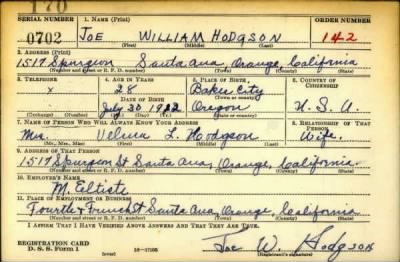 170
SERIAL NUMBER 1. NAME (Print) ORDER NUMBER
0702 JOE WILLIAM HODGSON 142
(First) (Middle) (Last)
2. ADDRESS (Print)
1517 Spurgeon Santa Ana, Orange, California
(Number and street or R. F. D. number) (Town) (County) (State)
3. TELEPHONE 4. AGE IN YEARS 5. PLACE OF BIRTH 6. COUNTRY OF CITIZENSHIP
x 28 Baker City
DATE OF BIRTH (Town or county)
July 30 1912 Oregon U. S. A.
(Exchange) (Number) (Mo.) (Day) (Yr.) (State or country)
7. NAME OF PERSON WHO WILL ALWAYS KNOW YOUR ADDRESS 8. RELATIONSHIP OF THAT PERSON
Mrs. Velma L. Hodgson Wife.
(Mr., Mrs., Miss) (First) (Middle) (Last)
9. ADDRESS OF THAT PERSON
1517 Spurgeon St Santa Ana, Orange, California.
(Number and street or R. F. D. number) (Town) (County) (State)
10. EMPLOYER'S NAME
M. Eltiste
11. PLACE OF EMPLOYMENT OR BUSINESS
Fourth & French St Santa Ana, Orange, California
(Number and street or R. F. D. number) (Town) (County) (State)
I AFFIRM THAT I HAVE VERIFIED ABOVE ANSWERS AND THAT THEY ARE TRUE.
REGISTRATION CARD
D. S. S. Form 1 (over) 16-17105 Joe W. Hodgson
(Registrant's signature)